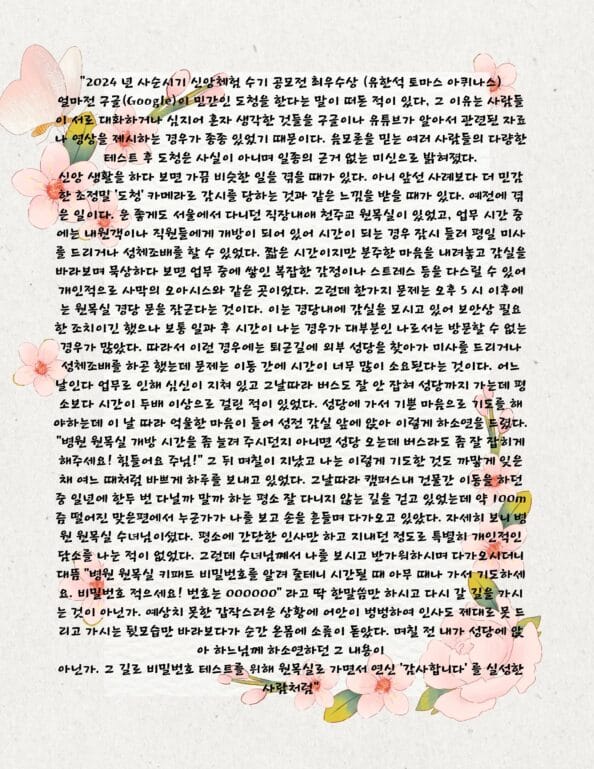 "2024 년 사순시기 신앙체험 수기 공모전 최우수상 (유한석 토마스 아퀴나스)
얼마전 구글(Google)이 민간인 도청을 한다는 말이 떠돈 적이 있다. 그 이유는 사람들
이 서로 대화하거나 심지어 혼자 생각한 것들을 구글이나 유튜브가 알아서 관련된 자료
나 영상을 제시하는 경우가 종종 있었기 때문이다. 음모론을 믿는 여러 사람들의 다양한
테스트 후 도청은 사실이 아니며 일종의 근거 없는 미신으로 밝혀졌다.
신앙 생활을 하다 보면 가끔 비슷한 일을 겪을 때가 있다. 아니 앞선 사례보다 더 민감
한 초정밀 '도청' 카메라로 감시를 당하는 것과 같은 느낌을 받을 때가 있다. 예전에 겪
은 일이다. 운 좋게도 서울에서 다니던 직장내애 천주교 원목실이 있었고, 업무 시간 중
에는 내원객이나 직원들에게 개방이 되어 있어 시간이 되는 경우 잠시 들러 평일 미사
를 드리거나 성체조배를 할 수 있었다. 짧은 시간이지만 분주한 마음을 내려놓고 감실을
바라보며 묵상하다 보면 업무 중에 쌓인 복잡한 감정이나 스트레스 등을 다스릴 수 있어
개인적으로 사막의 오아시스와 같은 곳이었다. 그런데 한가지 문제는 오후 5 시 이후에
는 원목실 경당 문을 잠근다는 것이다. 이는 경당내에 감실을 모시고 있어 보안상 필요
한 조치이긴 했으나 보통 일과 후 시간이 나는 경우가 대부분인 나로서는 방문할 수 없는
경우가 많았다. 따라서 이런 경우에는 퇴근길에 외부 성당을 찾아가 미사를 드리거나
성체조배를 하곤 했는데 문제는 이동 간에 시간이 너무 많이 소요된다는 것이다. 어느
날인다 업무로 인해 심신이 지쳐 있고 그날따라 버스도 잘 안 잡혀 성당까지 가는데 평
소보다 시간이 두배 이상으로 걸린 적이 있었다. 성당에 가서 기쁜 마음으로 기도를 해
야하는데 이 날 따라 억울한 마음이 들어 성전 감실 앞에 앉아 이렇게 하소연을 드렸다.
"병원 원목실 개방 시간을 좀 늘려 주시던지 아니면 성당 오는데 버스라도 좀 잘 잡히게
해주세요! 힘들어요 주님!" 그 뒤 며칠이 지났고 나는 이렇게 기도한 것도 까맣게 잊은
채 여느 때처럼 바쁘게 하루를 보내고 있었다. 그날따라 캠퍼스내 건물간 이동을 하던
중 일년에 한두 번 다닐까 말까 하는 평소 잘 다니지 않는 길을 걷고 있었는데 약 100m
쯤 떨어진 맞은편에서 누군가가 나를 보고 손을 흔들며 다가오고 있았다. 자세히 보니 병
원 원목실 수녀님이셨다. 평소에 간단한 인사만 하고 지내던 정도로 특별히 개인적인
담소를 나눈 적이 없었다. 그런데 수녀님께서 나를 보시고 반가워하시며 다가오시더니
대뜸 "병원 원목실 키패드 비밀번호를 알려 줄테니 시간될 때 아무 때나 가서 기도하세
요. 비밀번호 적으세요! 번호는 000000" 라고 딱 한말씀만 하시고 다시 갈 길을 가시
는 것이 아닌가. 예상치 못한 갑작스러운 상황에 어안이 벙벙하여 인사도 제대로 못 드
리고 가시는 뒷모습만 바라보다가 순간 온몸에 소름이 돋았다. 며칠 전 내가 성당에 앉
아 하느님께 하소연하던 그 내용이
아닌가. 그 길로 비밀번호 테스트를 위해 원목실로 가면서 연신 '감사합니다' 를 실성한
사람처럼"